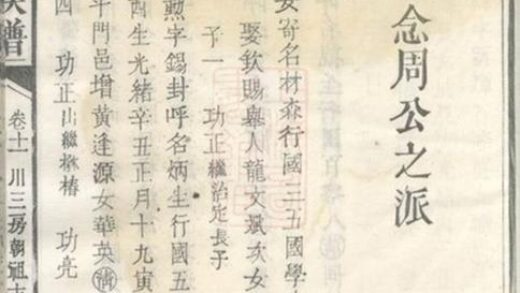 念周公之派
寄名材森行國三五國學
娶欽賜舉人龍文斌次女
子一 功正繼治定長子
勲字錫封呼名炳生行國五
酉生光緒辛丑正月十九寅
斗門邑增黃逢源女華英
四 功正出繼椿 功亮
族譜 卷十一 川三房朝祖